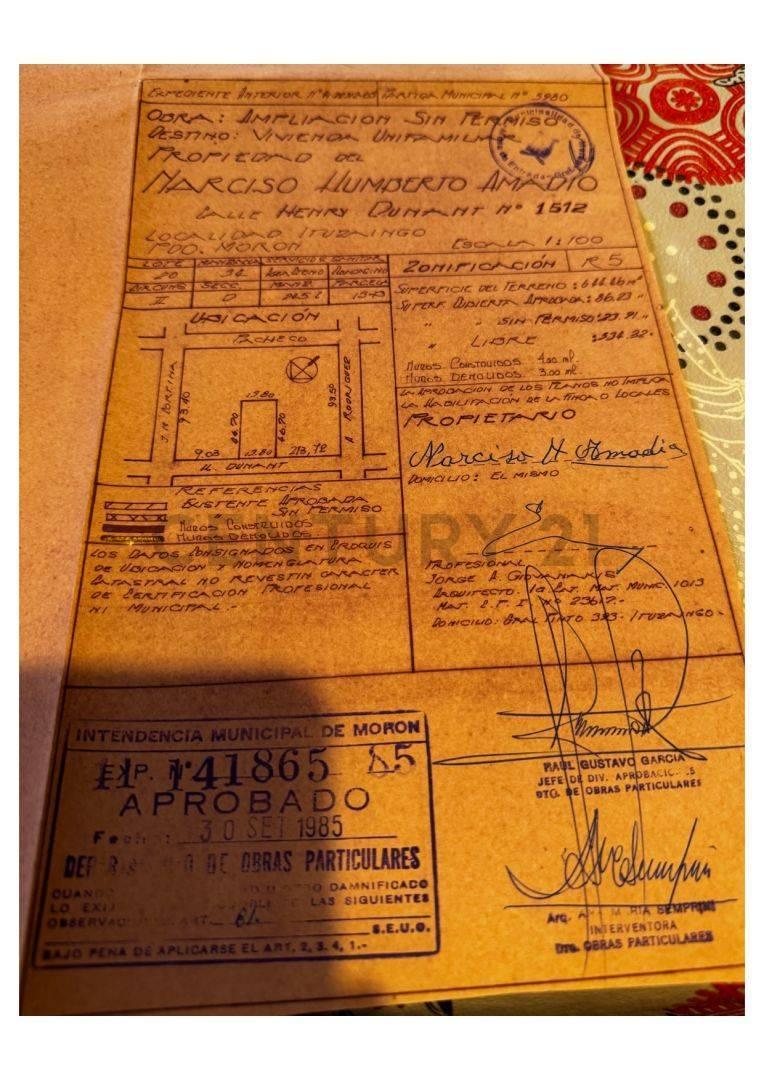 EXPEDIENTE ANTERIOR Nº PARTIDA MUNICIPAL Nº 5980
OBRA: AMPLIACION SIN PERMISO
DESTINO: VIVIENDA UNIFAMILIAR
PROPIEDAD DEL
NARCISO HUMBERTO AMADIO
CALLE HENRY DUNANT Nº 1512
LOCALIDAD ITUZAINGO
PDO. MORON ESCALA 1:100
LOTE MANZANA SERVICIOS SANITAR
20 34
CIRCUNS SECC. MANZ. PARCELA
II D
UBICACIÓN
PACHECO
93.40
13.80
46.70
46.70
93.50
A. RODRIGUEZ
9.03 13.80 213,72
H. DUNANT
REFERENCIAS
EXISTENTE APROBADA
SIN PERMISO
MUROS CONSTRUIDOS
MUROS DEMOLIDOS
LOS DATOS CONSIGNADOS EN CROQUIS
DE UBICACION Y NOMENCLATURA
CATASTRAL NO REVESTIN CARACTER
DE CERTIFICACION PROFESIONAL
NI MUNICIPAL.-
ZONIFICACIÓN R5
SUPERFICIE DEL TERRENO: 644.46 m²
SUPERF. CUBIERTA APROBADA: 86.23 "
" " SIN PERMISO: 23.91 "
" LIBRE
MUROS CONSTRUIDOS 4.00 ml.
MUROS DEMOLIDOS 3.00 ml.
LA APROBACION DE LOS PLANOS NO IMPLICA
LA HABILITACION DE LA FINCA O LOCALES
PROPIETARIO
Narciso H Amadio
DOMICILIO: EL MISMO
CENTURY 21
PROFESIONAL
JORGE A. GIOVANARIS
ARQUITECTO. 1a CAT. MAT. MUNIC. 1013
DOMICILIO: GRAL PINTO 393 - ITUZAINGO -
INTENDENCIA MUNICIPAL DE MORON
EXP. Nº 141865 85
APROBADO
Fecha: 30 SET 1985
DE OBRAS PARTICULARES
CUANDO DAMNIFICADO
LO EXIJ LAS SIGUIENTES
OBSERVAC ART.
S.E.U.O.
BAJO PENA DE APLICARSE EL ART, 2, 3, 4, 1.-
RAUL GUSTAVO GARCIA
JEFE DE DIV. APROBACIC S
DTO. DE OBRAS PARTICULARES
Arq. ANA MARIA SEMPRINI
INTERVENTORA
Dto. OBRAS PARTICULARES